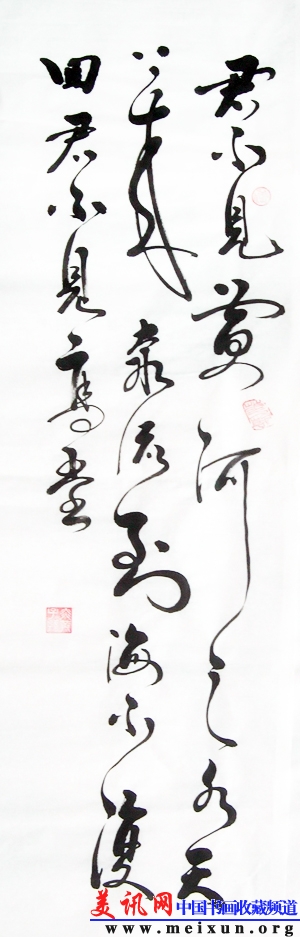 君不见黄河之水天
上来奔流到海不复
回君不见高堂
美讯网 中国书画收藏频道
www.meixun.org